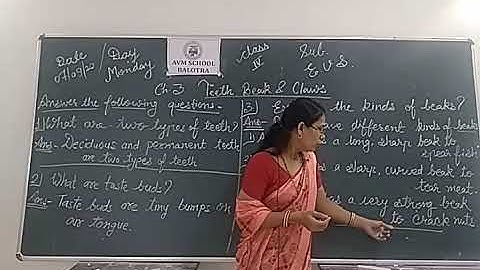 Date / Day
07/09/22 Monday
AVM SCHOOL
BALOTRA
Class
IV
Sub.
E.V.S.
Ch.3 Teeth Beak & Claws
Answer the following questions-
1) What are two types of teeth?
Ans- Deciduous and permanent teeth
are two types of teeth
2) What are taste buds?
Ans- Taste buds are tiny bumps on
our tongue.
3) the kinds of beaks?
Ans- have different kinds of beaks
1) a long, sharp beak to
spear fish
a sharp, curved beak to
tear meat.
a very strong beak
to crack nuts